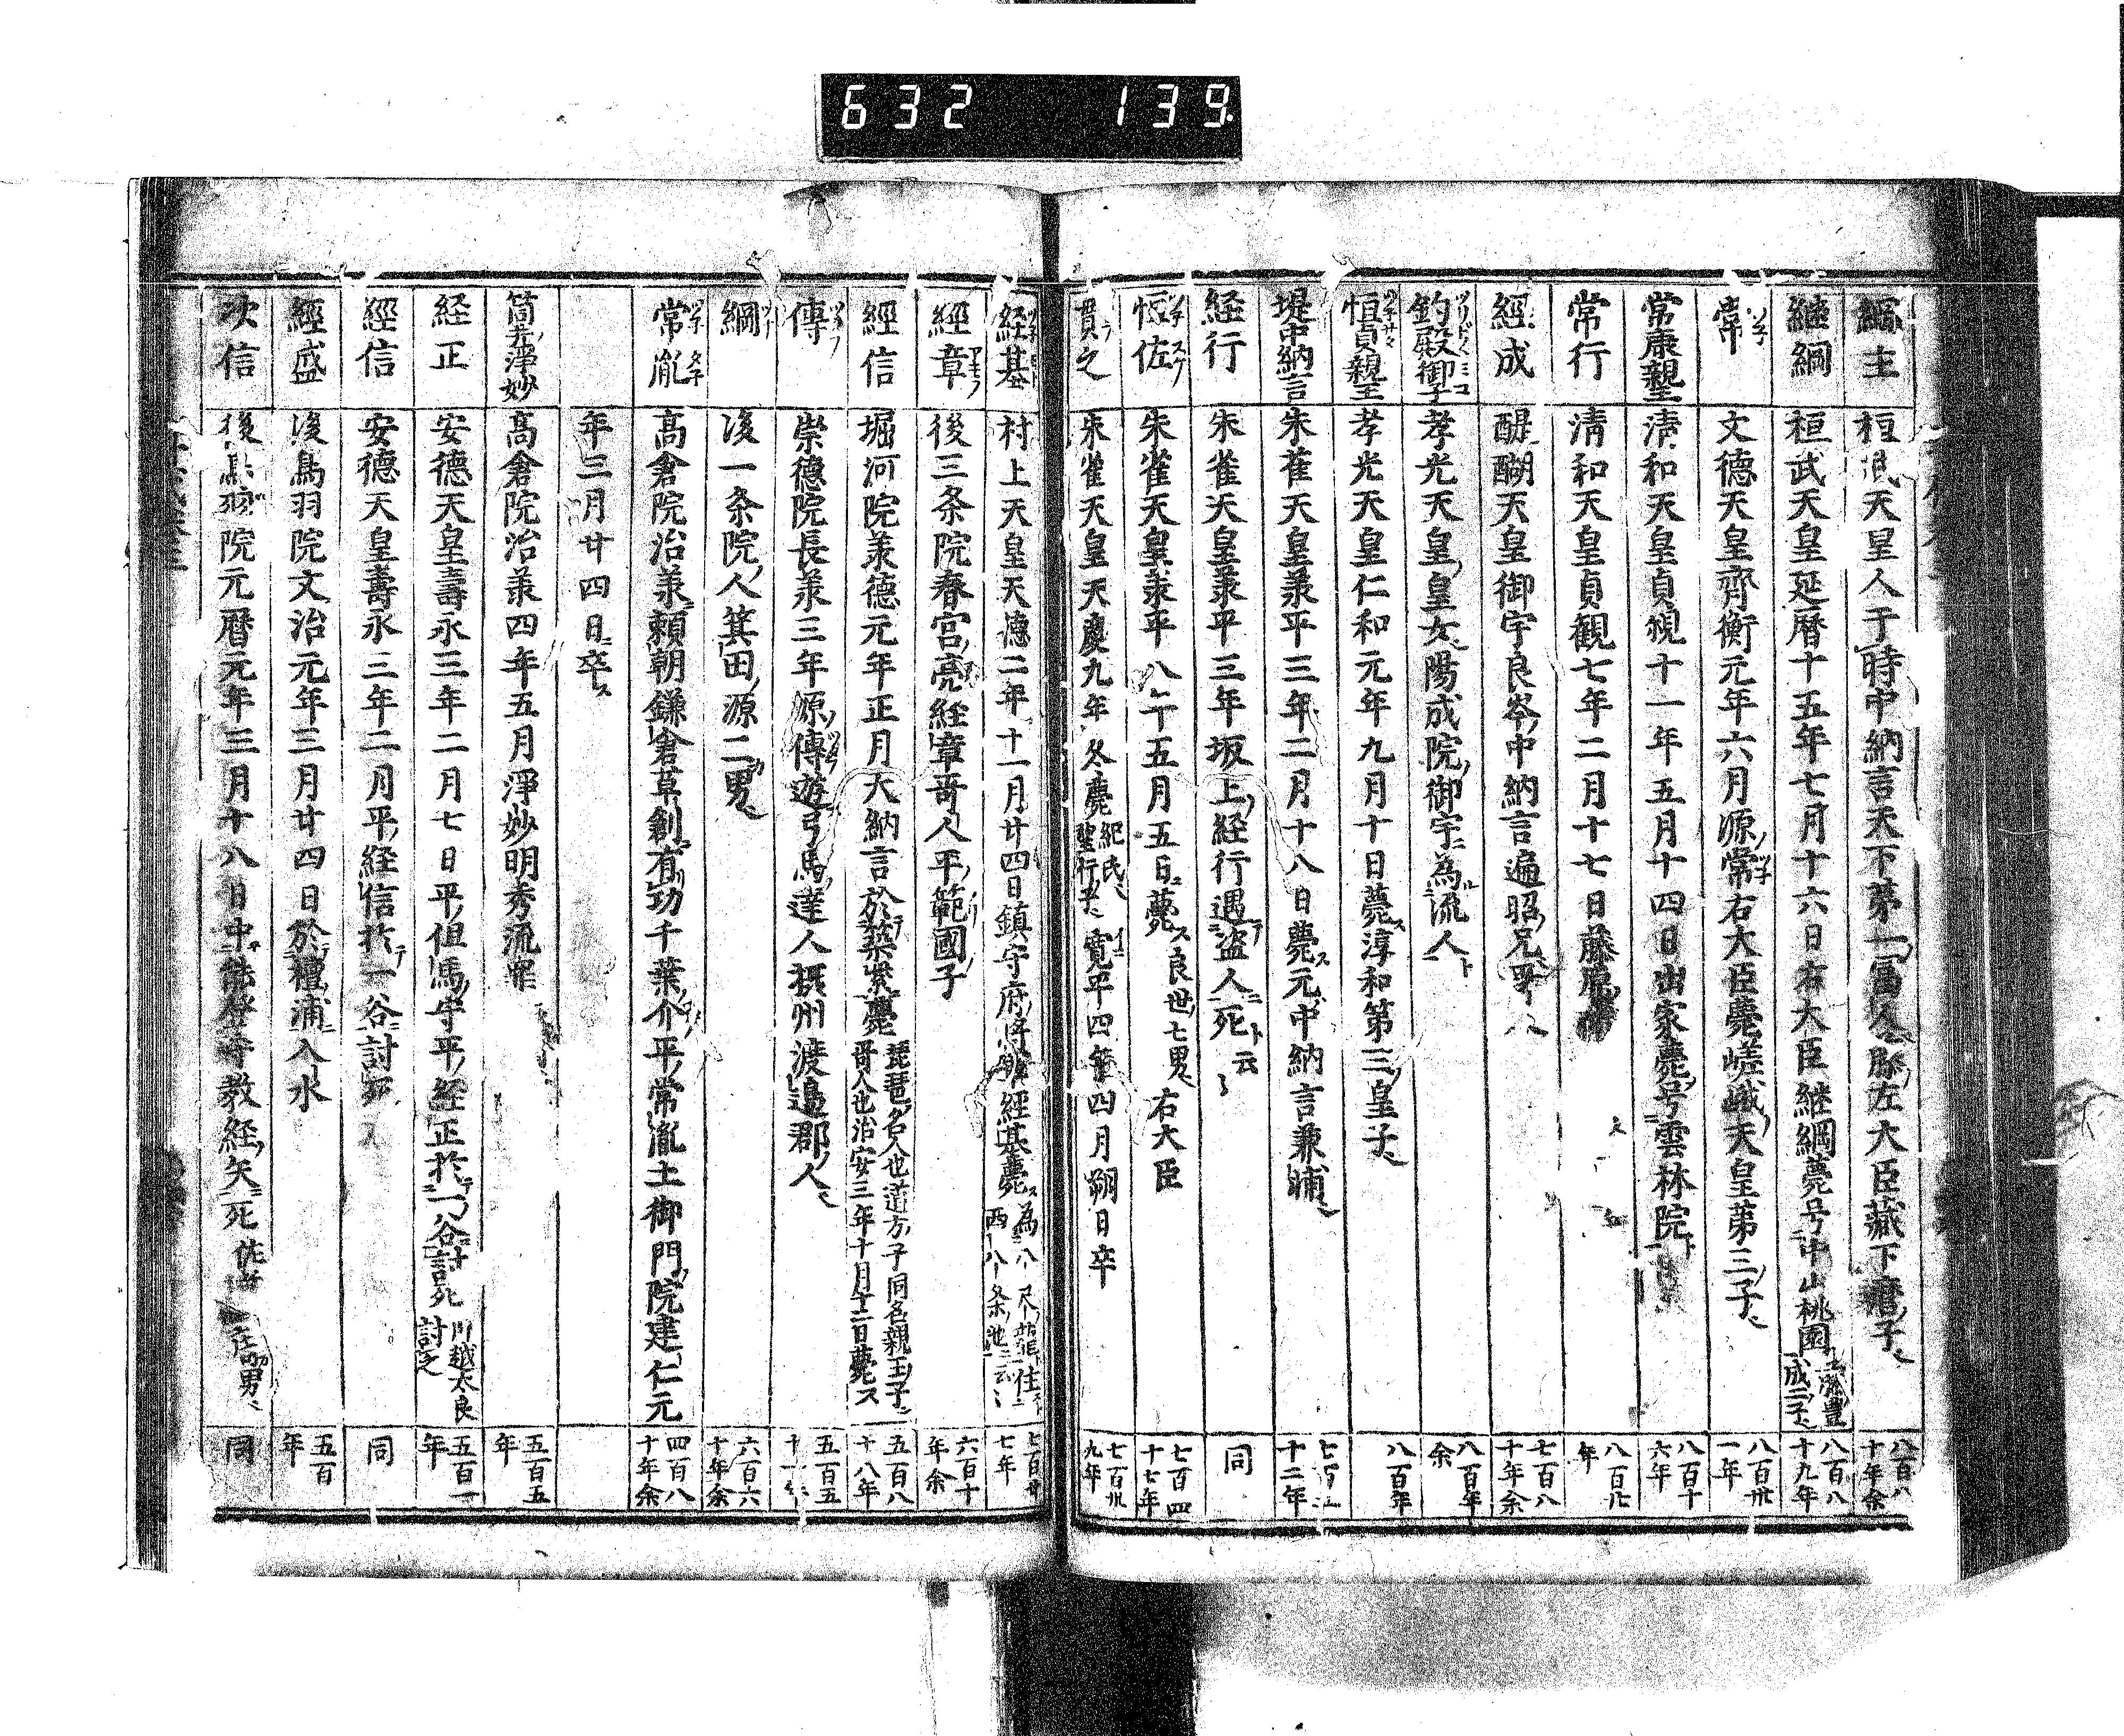 632 139
綱主 桓武天皇人于時中納言天下第一冨人 左大臣藏下麿子
継綱 桓武天皇延暦十五年七月十六日右大臣継綱薨号中山桃園 豊成二子 八百八十九年
常 文德天皇齊衡元年六月源常右大臣薨嵯峨天皇第三子 八百卅一年
常康親王 清和天皇貞観十一年五月十四日出家薨号雲林院 八百十六年
常行 清和天皇貞観七年二月十七日藤原 年
經成 醍醐天皇御宇良岑中納言遍昭兄 七百八十年余
釣殿御子 孝光天皇皇女陽成院御宇為流人 八百年余
恒貞親王 孝光天皇仁和元年九月十日薨淳和第三皇子 八百年
堤中納言 朱雀天皇兼平三年二月十八日薨元中納言兼輔 十二年
経行 朱雀天皇兼平三年坂上経行遇盗人死ト云 同
恒佐 朱雀天皇兼平八年五月五日薨 良世七男 右大臣 七百四十七年
貫之 朱雀天皇天慶九年冬薨 紀氏 寛平四年四月朔日卒 七百卅九年
経基 村上天皇天德二年十一月廿四日鎮守府将軍經基薨 為八尺龍住 西八条池 七年
經章 後三条院春宮亮経章哥人平範國子 六百十年余
經信 堀河院兼德元年正月大納言於築紫薨 琵琶名人也道方子同名親王子 哥人也治安三年十月十二日薨ス 五百八十八年
傳 崇德院長兼三年源傳遊弓馬達人摂州渡邉郡人 五百五
綱 後一条院人箕田源二男 六百六十年余
常胤 髙倉院治兼頼朝鎌倉草創有功千葉介平常胤土御門院建仁元 四百八十年余
年三月廿四日卒ス
筒井淨妙 髙倉院治兼四年五月淨妙明秀流罪 五百五年
経正 安德天皇壽永三年二月七日平但馬守平経正於一谷討死 川越太良討之 五百一年
經信 安德天皇壽永三年二月平経信於一谷討死 同
經盛 後鳥羽院文治元年三月廿四日於檀浦入水 五百年
次信 後鳥羽院元暦元年三月十八日中能登守教経矢死 男 同